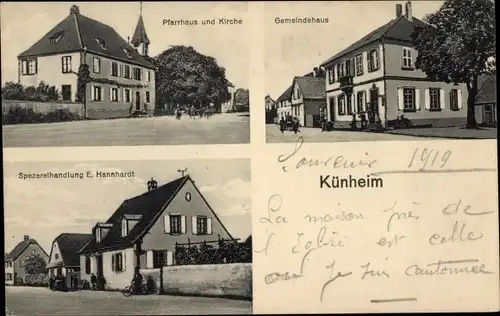 Pfarrhaus und Kirche
Gemeindehaus
Spezereihandlung E. Hannhardt
Souvenir 1919
Künheim
La maison près de
l'Eglise est celle
ou je suis cantonnée